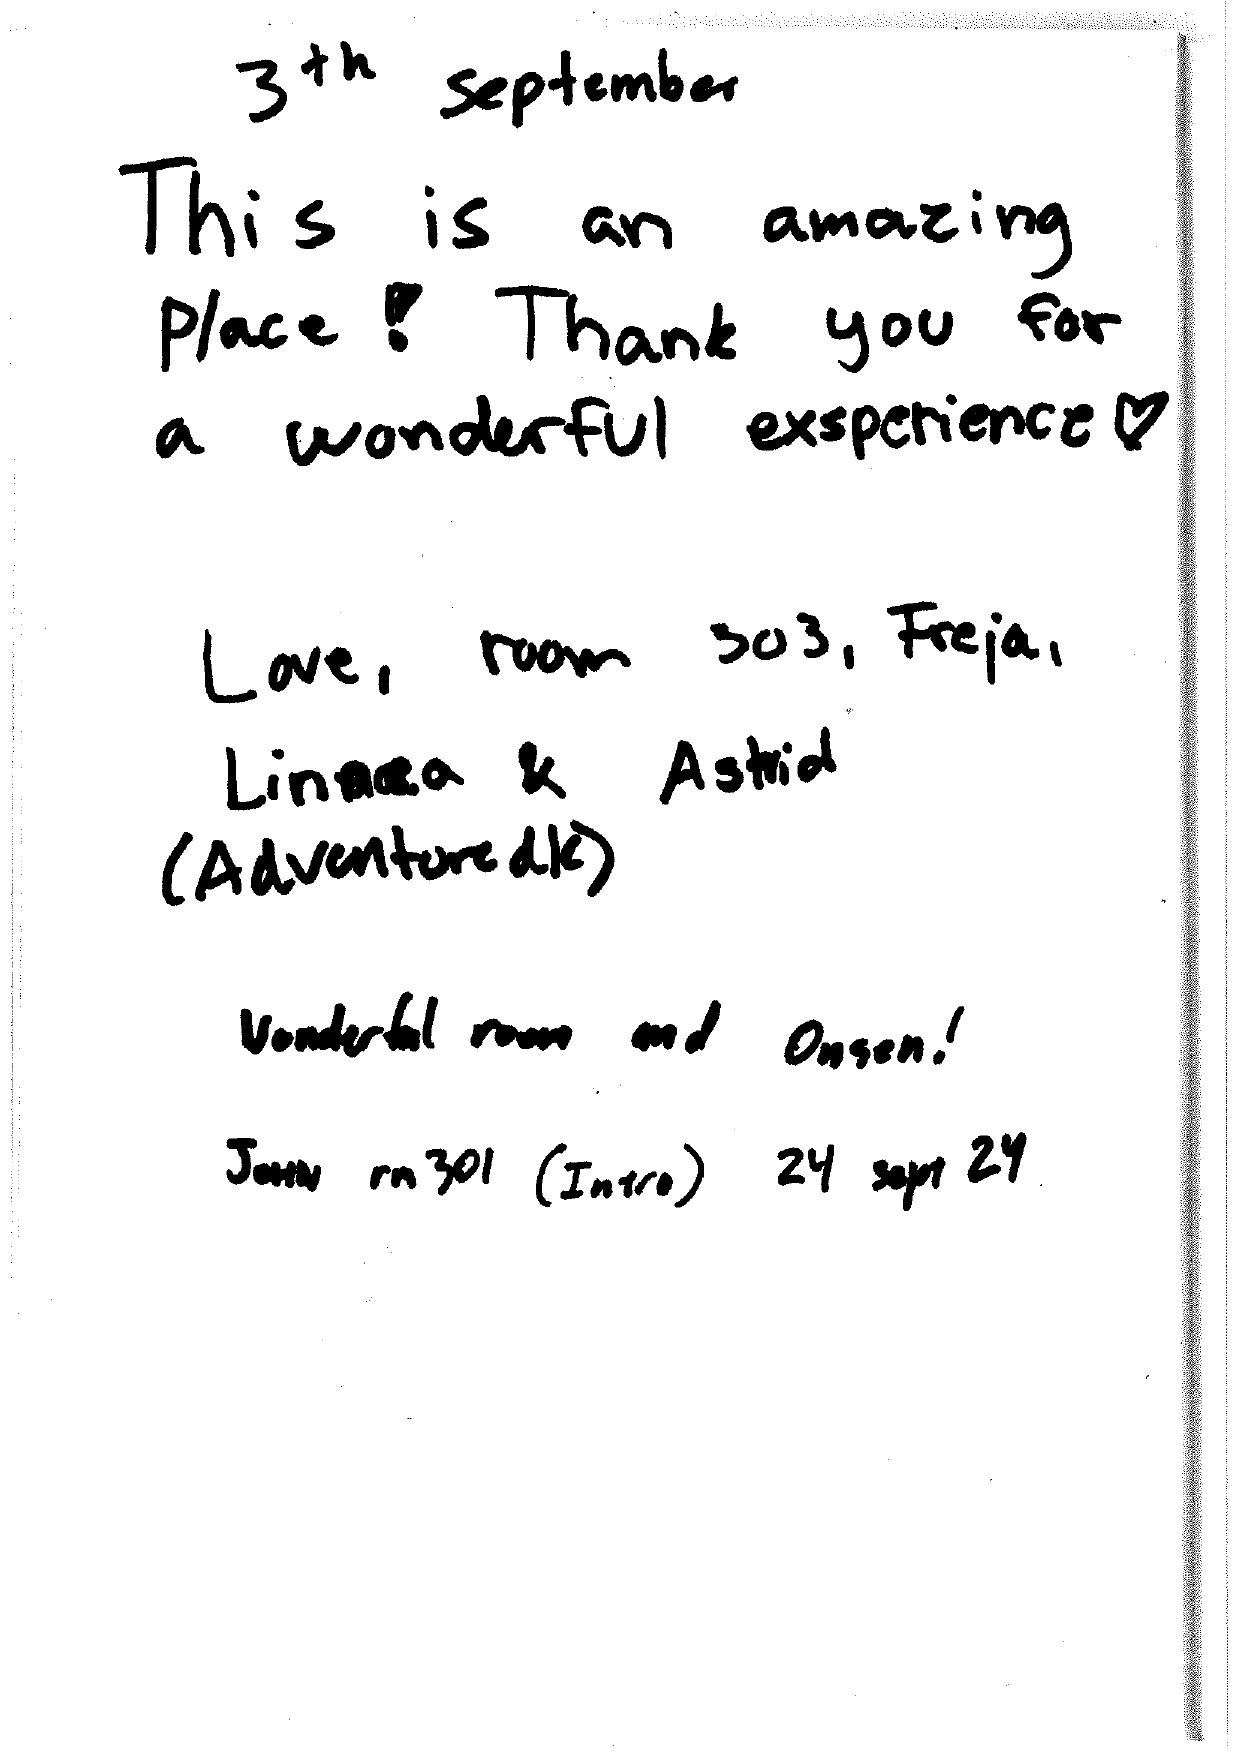 3th september
This is an amazing
place! Thank you for
a wonderful exsperience ♡
Love, room 303, Freja,
Linnea & Astrid
(Adventure dk)
Wonderful room and Onsen!
John rm 301 (Intro) 24 sept 24